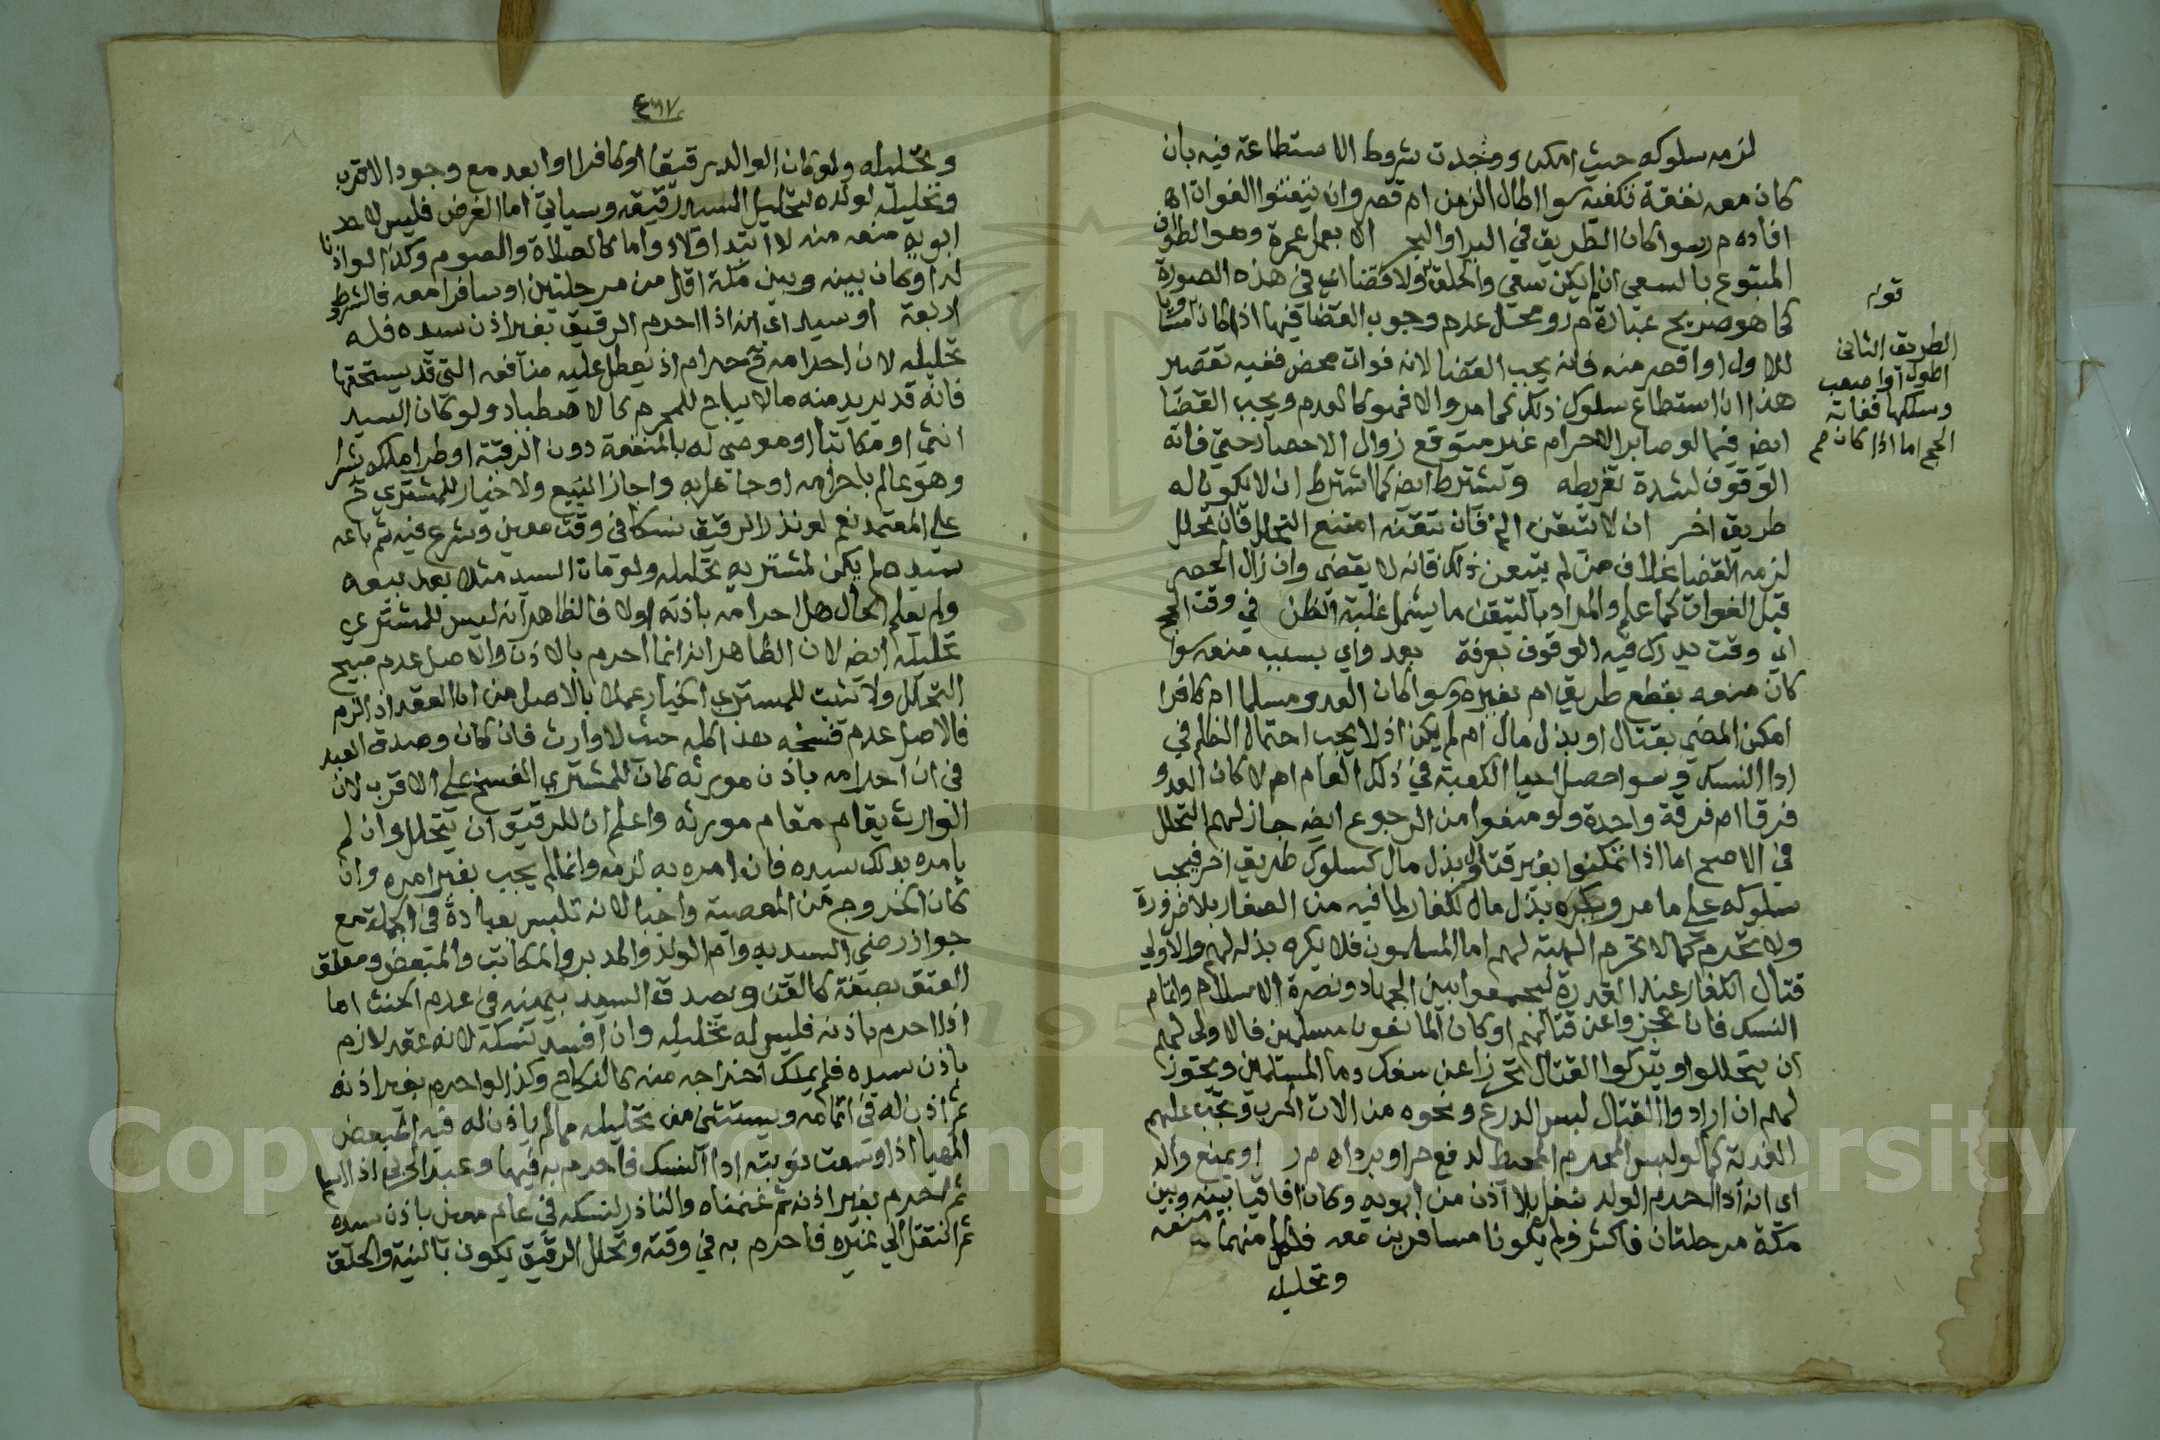 لزمه سلوكه حيث امكن ووجدت شروط الاستطاعة فيه بان
كان معه نفقة تكفيه سوا طال الزمن ام قصر وان تيقنوا الفوات اه
افاده م ر سوا كان الطريق في البر او البحر الا بعمل عمرة وهو الطواف
المتبوع بالسعي ان لم يكن سعي والحلق ولا قضا اي في هذه الصورة
كما هو صريح عبارة م ر ومحل عدم وجوب القضا فيها اذا كان مساويا
للاول او اقصر منه فانه يجب القضا لانه فوات محض ففيه تقصير
هذا ان استطاع سلوك ذلك كما مر والا فهو كالعدم ويجب القضا
ايضا فيما لو صابر الاحرام غير متوقع زوال الاحصار حتى فاته
الوقوف لشدة تفريطه ويشترط ايضا كما اشترط ان لا يكون له
طريق اخر ان لا يتيقن الخ فان تيقنه امتنع التحلل فان تحلل
لزمه القضا بخلاف من لم يتيقن ذلك فانه لا يقضي وان زال الحصر
قبل الفوات كما علم والمراد بالتيقن ما يشمل غلبة الظن في وقت الحج
اي وقت يدرك فيه الوقوف بعرفة بعدو اي بسببه منعه سوا
كان منعه بقطع طريق ام بغيره وسوا كان العدو مسلما ام كافرا
امكن المضي بقتال او بذل مال ام لم يكن اذ لا يجب احتمال الظلم في
ادا النسك وسوا حصل احيا الكعبة في ذلك العام ام لا كان العدو
فرقا ام فرقة واحدة ولو منعوا من الرجوع ايضا جاز لهم التحلل
في الاصح اما اذا تمكنوا بغير قتال او بذل مال كسلوك طريق اخر فيجب
سلوكه على ما مر ويكره بذل مال للكفار لما فيه من الصغار بلا ضرورة
ولا يحرم كما لا تحرم الهبة لهم اما المسلمون فلا يكره بذله لهم والاولى
قتال الكفار عند القدرة ليجمعوا بين الجهاد ونصرة الاسلام واتمام
النسك فان عجزوا عن قتالهم او كان المانعون مسلمين فالاولى لهم
ان يتحللوا ويتركوا القتال تحرزا عن سفك دما المسلمين ويجوز
لهم ان ارادوا القتال لبس الدرع ونحوه من الات الحرب وتجب عليهم
الفدية كما لو لبس المحرم المخيط لدفع حر او برد اه م ر او بمنع والد
اي انه اذا احرم الولد بنفل بلا اذن من ابويه وكان افاقيا بينه وبين
مكة مرحلتان فاكثر ولم يكونا مسافرين معه فلكل منهما منعه
وتحليله
قوله
الطريق الثاني
اطول او اصعب
وسلكها ففاته
الحج اما اذا كان صح
٤٦٧
وتحليله ولو كان الوالد رقيقا او كافرا او ابعد مع وجود الاقرب
وتحليله لولده كتحليل السيد رقيقه وسياتي اما الفرض فليس لاحد
ابويه منعه منه لا ابتدا ولا دواما كالصلاة والصوم وكذا لو اذنا
له او كان بينه وبين مكة اقل من مرحلتين او سافرا معه فالشروط
اربعة او سيد اي انه اذا احرم الرقيق بغير اذن سيده فله
تحليله لان احرامه ح حرام اذ يعطل عليه منافعه التي قد يستحقها
فانه قد يريد منه ما لا يباح للمحرم كالاصطياد ولو كان السيد
انثى او مكاتبا او موصى له بالمنفعة دون الرقبة او طرا ملكه بشرا
وهو عالم باحرامه او جاهل به واجاز البيع ولا خيار للمشتري ح
على المعتمد نعم لو نذر الرقيق نسكا في وقت معين وشرع فيه ثم باعه
سيده لم يكن لمشتريه تحليله ولو مات السيد مثلا بعد بيعه
ولم يعلم الحال هل احرامه باذنه او لا فالظاهر انه ليس للمشتري
تحليله ايضا لان الظاهر انه انما احرم بالاذن والاصل عدم مبيح
التحلل ولا يثبت للمشتري الخيار عملا بالاصل من ان العقد اذا لزم
فالاصل عدم فسخه هذا كله حيث لا وارث فان كان وصدق العبد
في ان احرامه باذن مورثه كان للمشتري الفسخ على الاقرب لان
الوارث يقام مقام مورثه واعلم ان للرقيق ان يتحلل وان لم
يامره بذلك سيده فان امره به لزمه وانما لم يجب بغير امره وان
كان الخروج من المعصية واجبا لانه تلبس بعبادة في الجملة مع
جواز رضى السيد به وام الولد والمدبر والمكاتب والمتبعض ومعلق
العتق بصفة كالقن ويصدق السيد بيمينه في عدم الحنث اما
اذا احرم باذنه فليس له تحليله وان افسد نسكه لانه عقد لازم
باذن سيده فلم يملك اخراجه منه كالنكاح وكذا لو احرم بغير اذنه
ثم اذن له في اتمامه ويستثنى من تحليله مما لم ياذن له فيه المبعض
المهيا اذا وسعت نوبته ادا النسك فاحرم به فيها وعبد الحربي اذا اسلم
ثم احرم بغير اذنه ثم غنمناه والناذر لنسكه في عام معين باذن سيده
ثم انتقل الى غيره فاحرم به في وقته وتحلل الرقيق يكون بالنية والحلق
Copyright © King Saud University
195